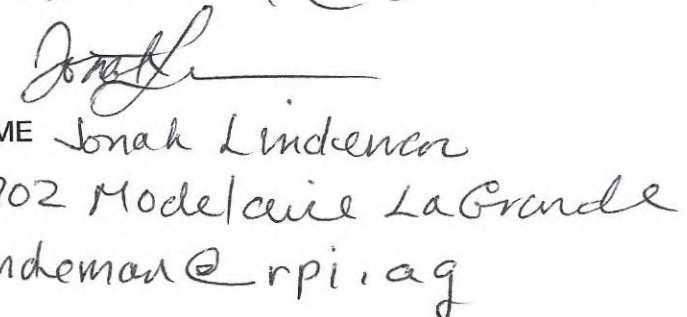 ME Jonah Lindeman
902 Modelaire LaGrande
ndeman@rpi.ag